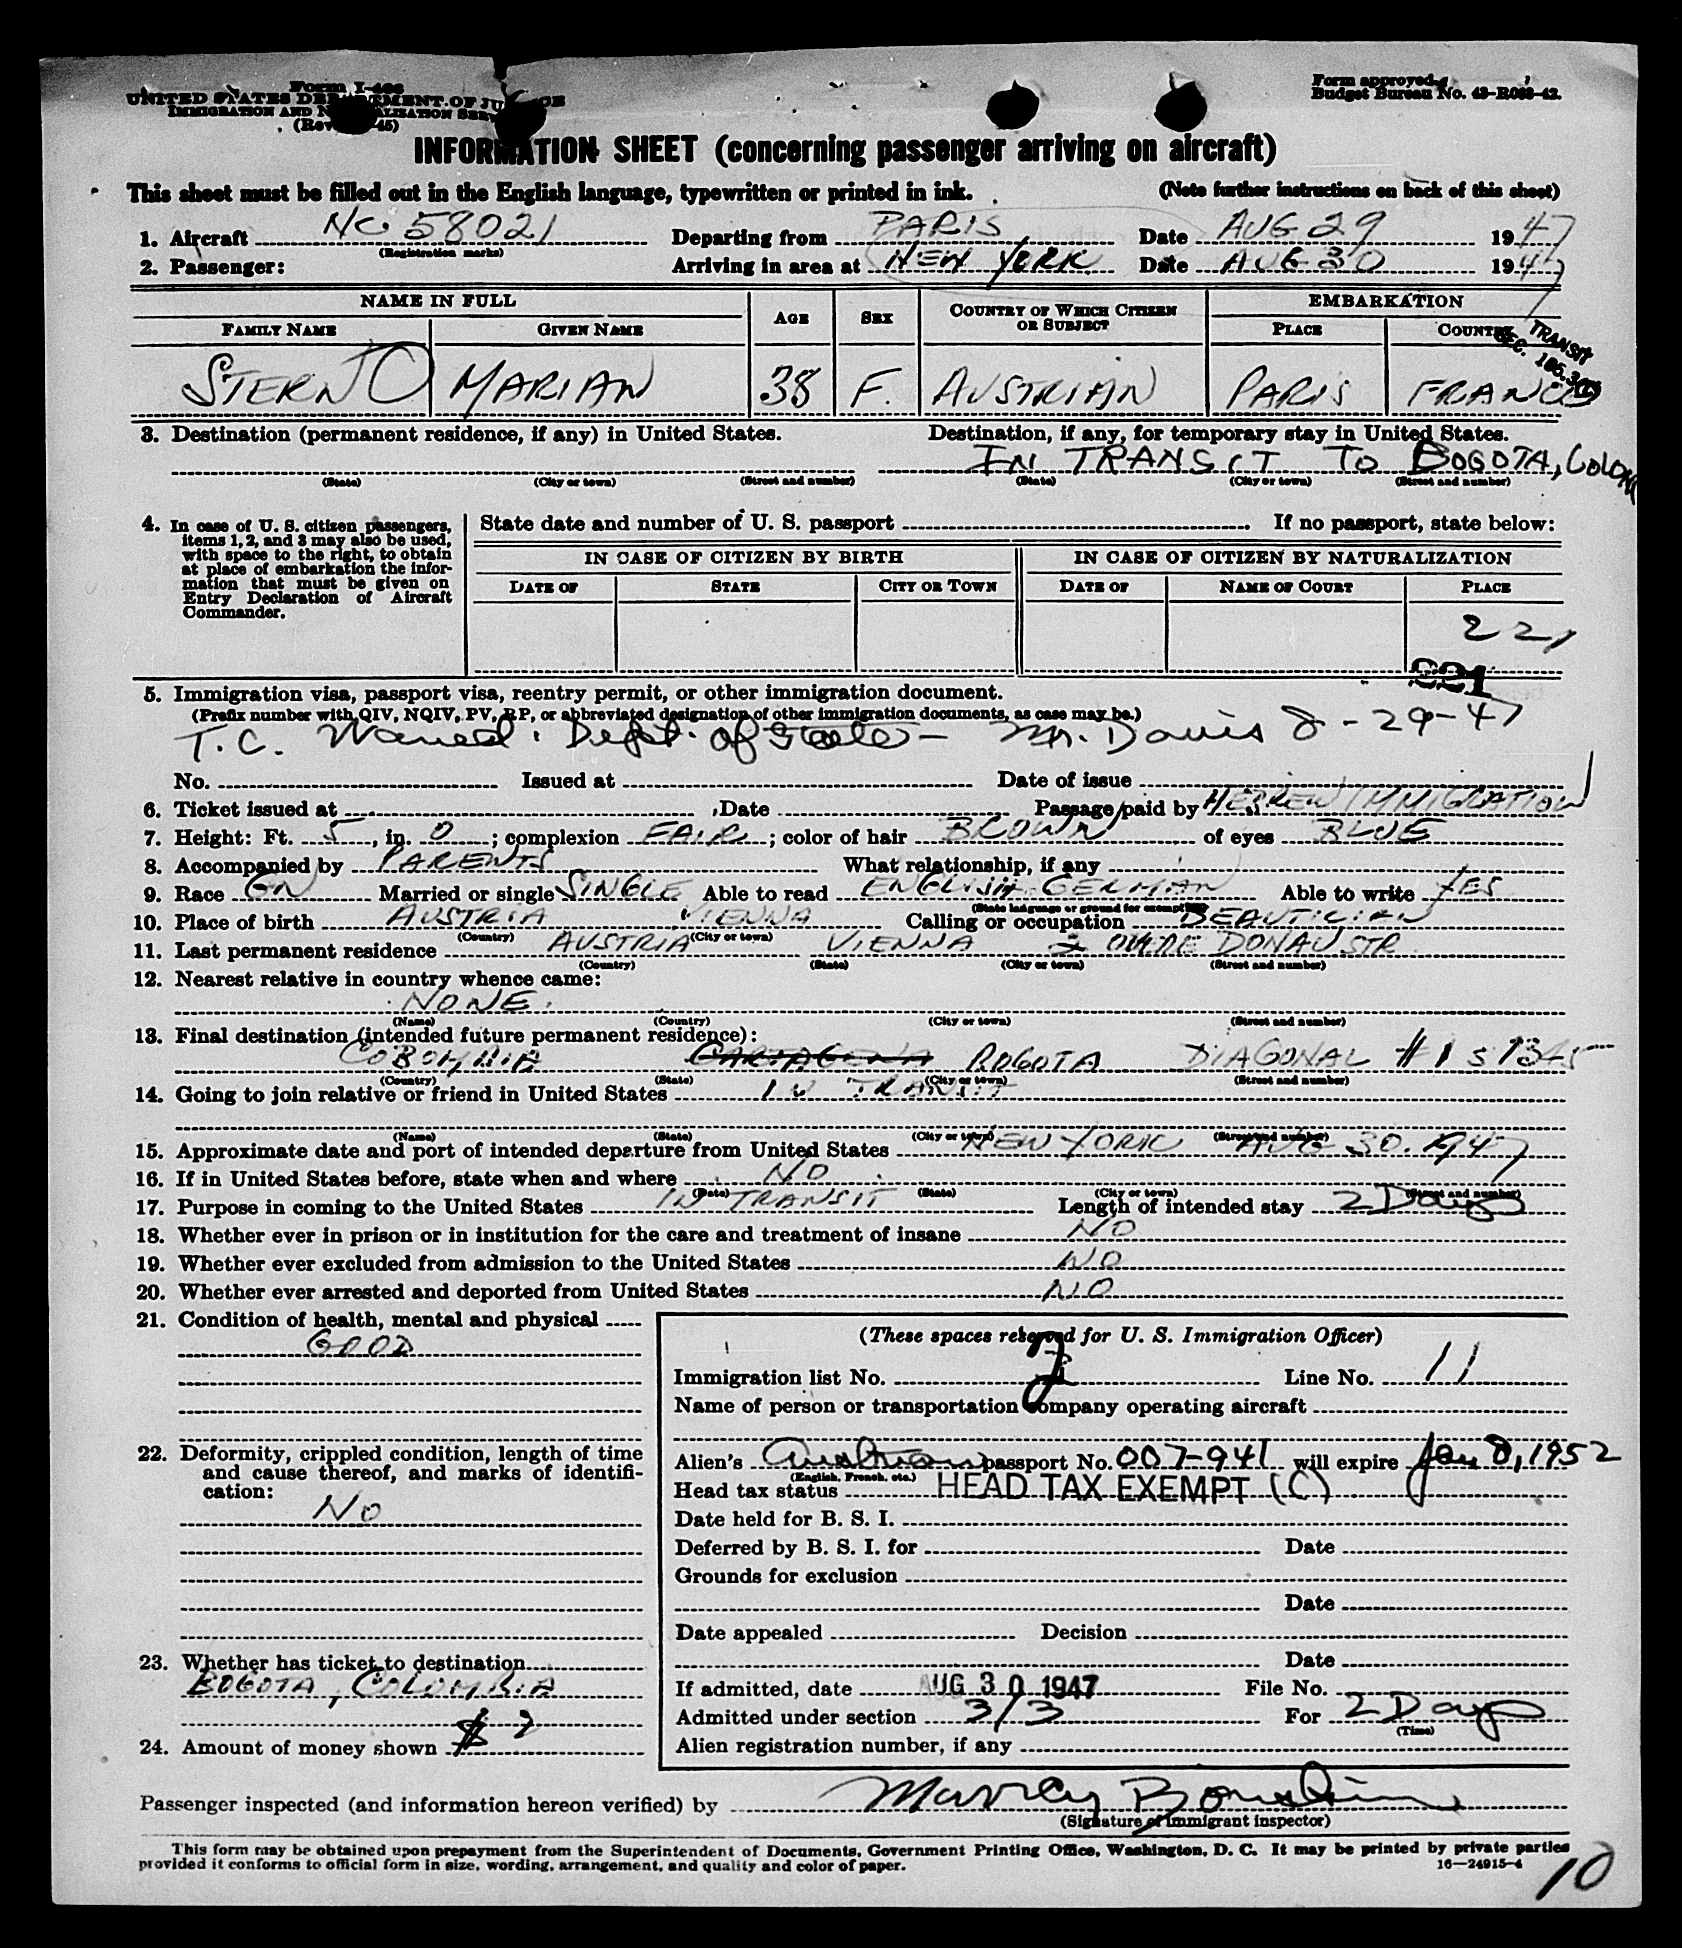 Form I-466
UNITED STATES DEPARTMENT OF JUSTICE
IMMIGRATION AND NATURALIZATION SERVICE
(Rev. 45)
Form approved
Budget Bureau No. 43-R088-42.
INFORMATION SHEET (concerning passenger arriving on aircraft)
This sheet must be filled out in the English language, typewritten or printed in ink. (Note further instructions on back of this sheet)
1. Aircraft NC 58021 Departing from PARIS Date AUG 29 1947
(Registration marks)
2. Passenger: Arriving in area at NEW YORK Date AUG 30 1947
NAME IN FULL AGE SEX COUNTRY OF WHICH CITIZEN OR SUBJECT EMBARKATION
FAMILY NAME GIVEN NAME PLACE COUNTRY
TRANSIT
SEC.
STERN MARIAN 38 F. AUSTRIAN PARIS FRANCE
3. Destination (permanent residence, if any) in United States. Destination, if any, for temporary stay in United States.
IN TRANSIT TO BOGOTA,
(State) (City or town) (Street and number) (State) (City or town) (Street and number)
4. In case of U. S. citizen passengers, items 1, 2, and 3 may also be used, with space to the right, to obtain at place of embarkation the information that must be given on Entry Declaration of Aircraft Commander.
State date and number of U. S. passport If no passport, state below:
IN CASE OF CITIZEN BY BIRTH IN CASE OF CITIZEN BY NATURALIZATION
DATE OF STATE CITY OR TOWN DATE OF NAME OF COURT PLACE
221
221
5. Immigration visa, passport visa, reentry permit, or other immigration document.
(Prefix number with QIV, NQIV, PV, RP, or abbreviated designation of other immigration documents, as case may be.)
T.C. Waived. Dept. of State - Mr. Davis 8-29-47
No. Issued at Date of issue
6. Ticket issued at Date Passage paid by HEBREW IMMIGRATION
7. Height: Ft. 5, in. 0; complexion FAIR; color of hair BROWN of eyes BLUE
8. Accompanied by PARENTS What relationship, if any
9. Race GN Married or single SINGLE Able to read ENGLISH GERMAN Able to write YES
(State language or ground for exemption)
10. Place of birth AUSTRIA VIENNA Calling or occupation BEAUTICIAN
(Country) (City or town)
11. Last permanent residence AUSTRIA VIENNA 2 DONAU STR
(Country) (State) (City or town) (Street and number)
12. Nearest relative in country whence came:
NONE.
(Name) (Country) (City or town) (Street and number)
13. Final destination (intended future permanent residence):
COLOMBIA CARTAGENA BOGOTA DIAGONAL
(Country) (State) (City or town) (Street and number)
14. Going to join relative or friend in United States IN TRANSIT
(Name) (State) (City or town) (Street and number)
15. Approximate date and port of intended departure from United States NEW YORK AUG 30. 1947
16. If in United States before, state when and where NO
(Date) (State) (City or town) (Street and number)
17. Purpose in coming to the United States IN TRANSIT Length of intended stay 2 Days
18. Whether ever in prison or in institution for the care and treatment of insane NO
19. Whether ever excluded from admission to the United States NO
20. Whether ever arrested and deported from United States NO
21. Condition of health, mental and physical
GOOD
22. Deformity, crippled condition, length of time and cause thereof, and marks of identification:
NO
23. Whether has ticket to destination
BOGOTA, COLOMBIA
24. Amount of money shown $ 2
(These spaces reserved for U. S. Immigration Officer)
Immigration list No. Line No. 11
Name of person or transportation company operating aircraft
Alien's Austrian passport No. 007-941 will expire Jan 8, 1952
(English, French, etc.)
Head tax status HEAD TAX EXEMPT (C)
Date held for B. S. I.
Deferred by B. S. I. for Date
Grounds for exclusion
Date
Date appealed Decision
Date
If admitted, date AUG 30 1947 File No.
Admitted under section 3/3 For 2 Days
(Time)
Alien registration number, if any
Passenger inspected (and information hereon verified) by Murray
(Signature of immigrant inspector)
This form may be obtained upon prepayment from the Superintendent of Documents, Government Printing Office, Washington, D. C. It may be printed by private parties
provided it conforms to official form in size, wording, arrangement, and quality and color of paper. 16—24915-4
10